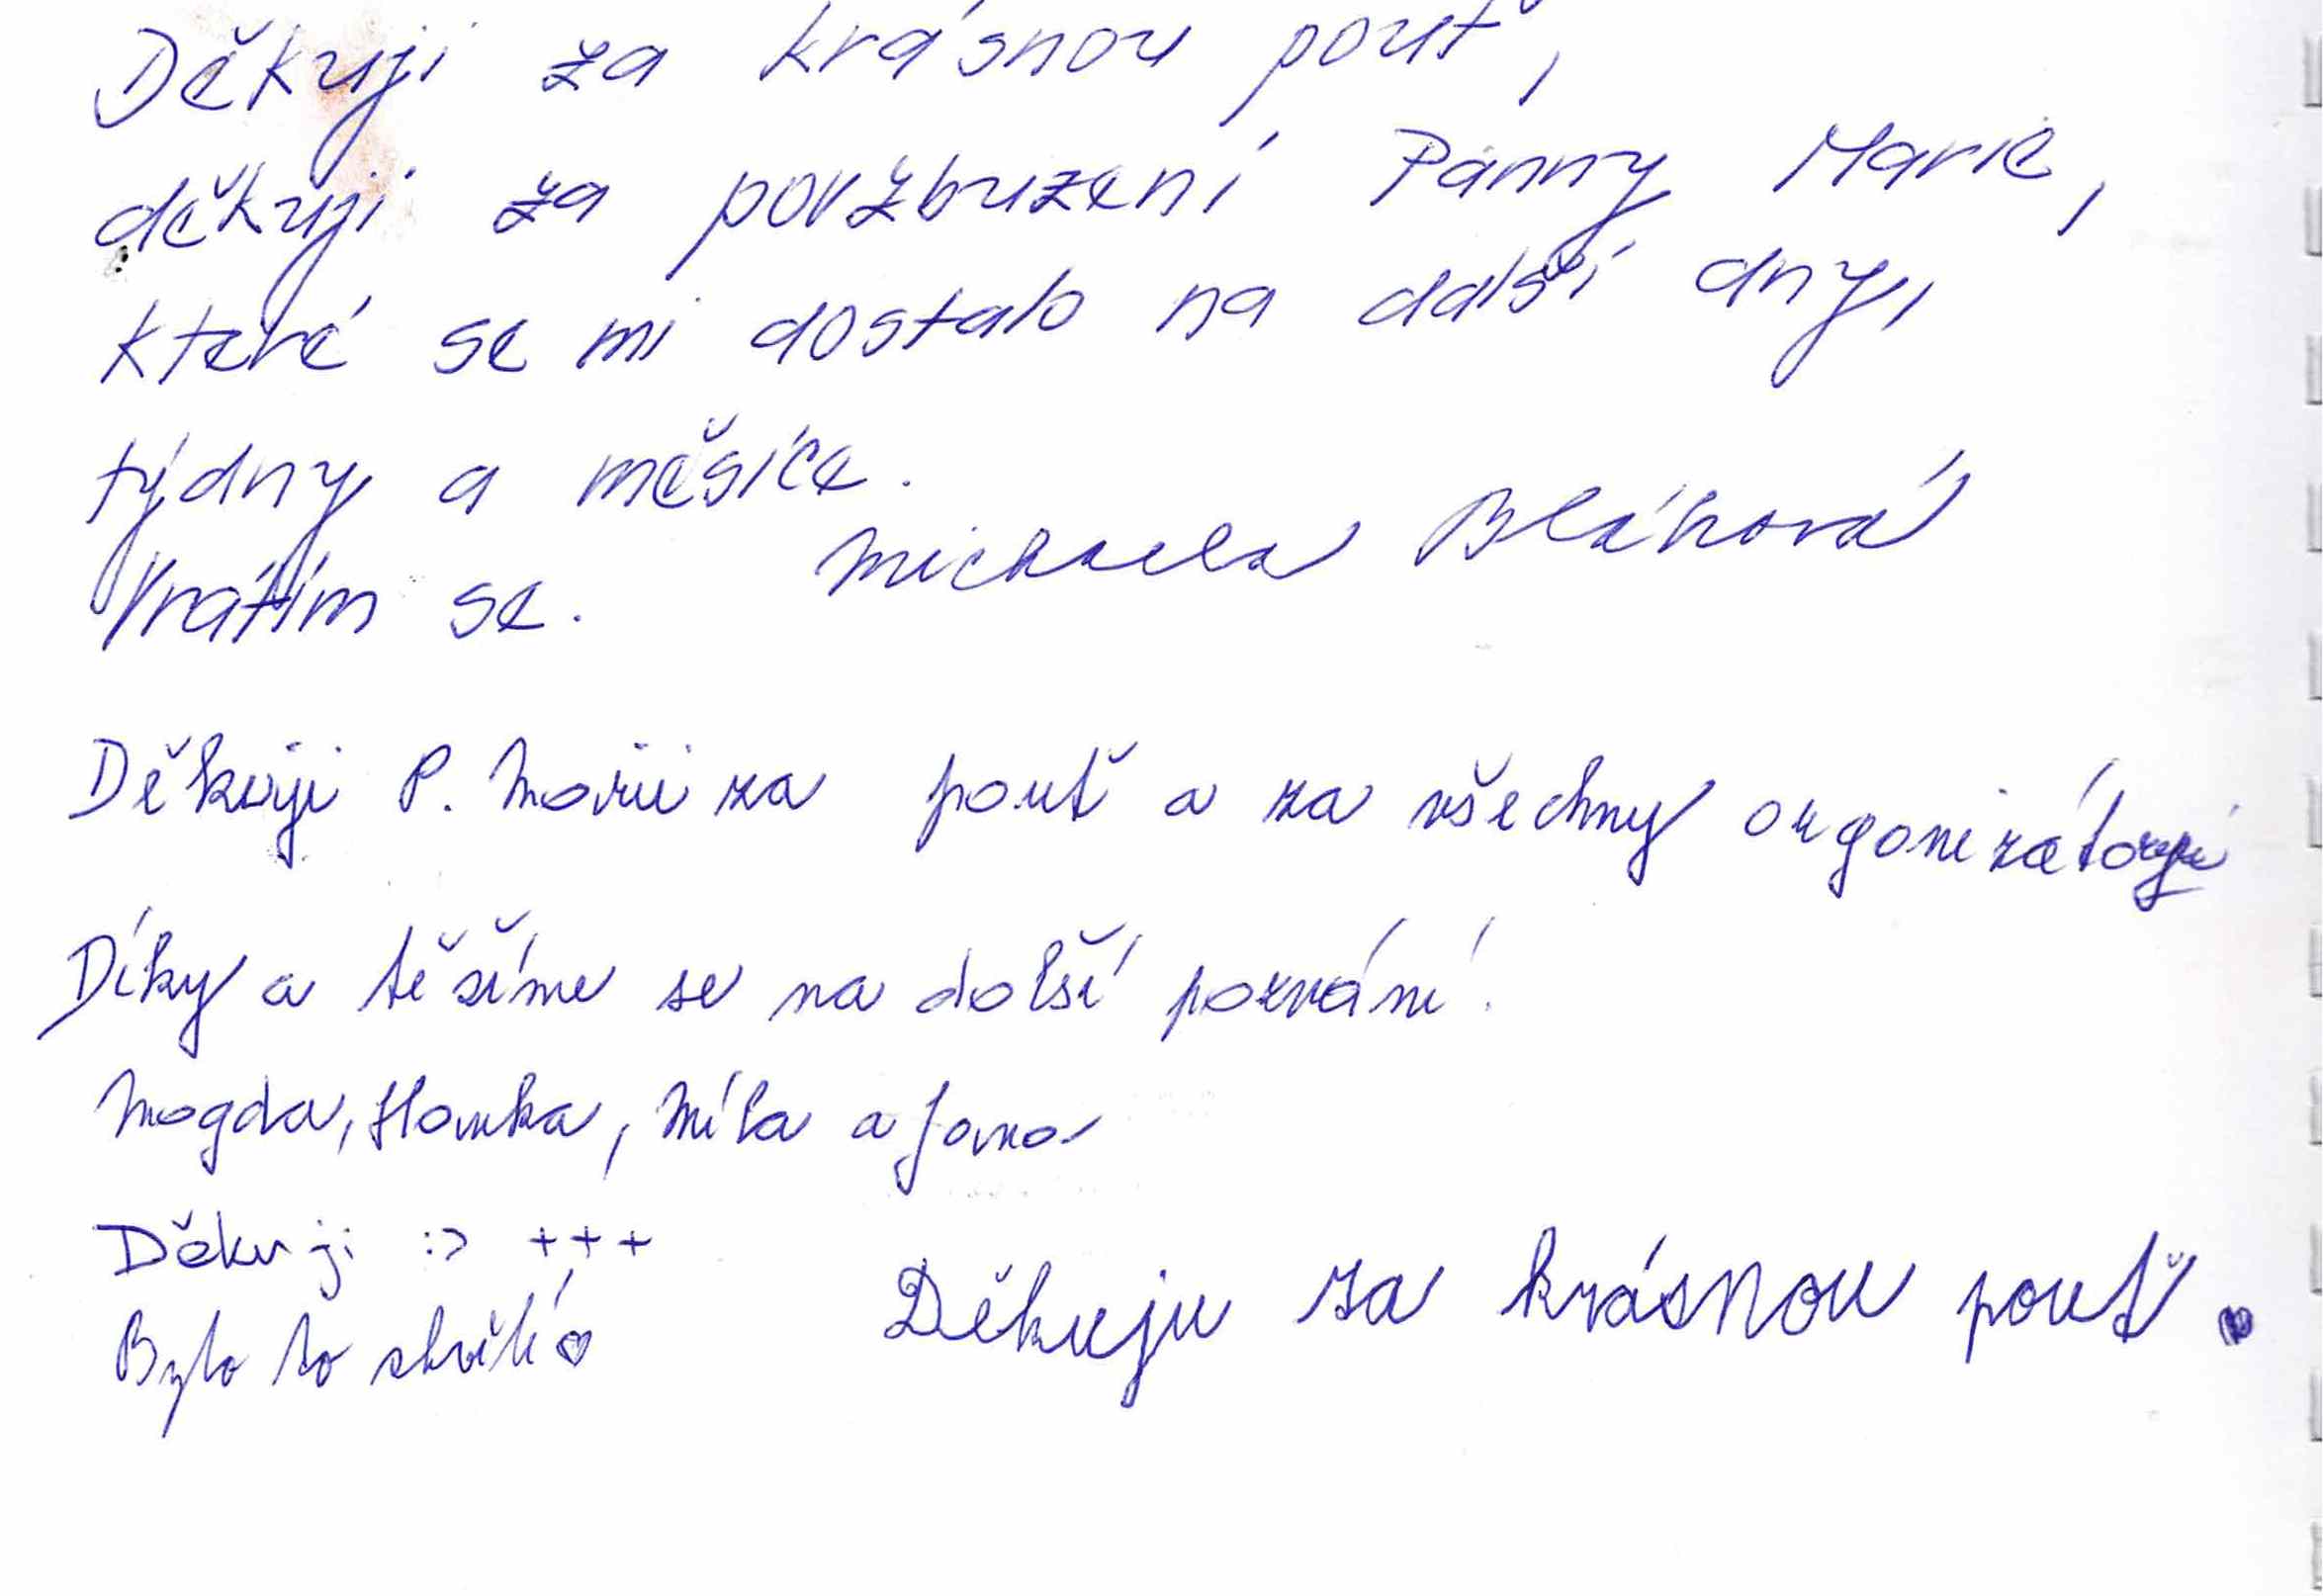 Děkuji za krásnou pouť,
děkuji za povzbuzení Panny Marie,
které se mi dostalo na další dny,
týdny a měsíce.
Vrátím se. Michaela Bláhová
Děkuji P. Marii za pouť a za všechny organizátory
Díky a těšíme se na další pozvání.
Magda, Hanka, Míla a Jana
Děkuji :> +++
Bylo to skvělé ♡
Děkuju za krásnou pouť. ♥